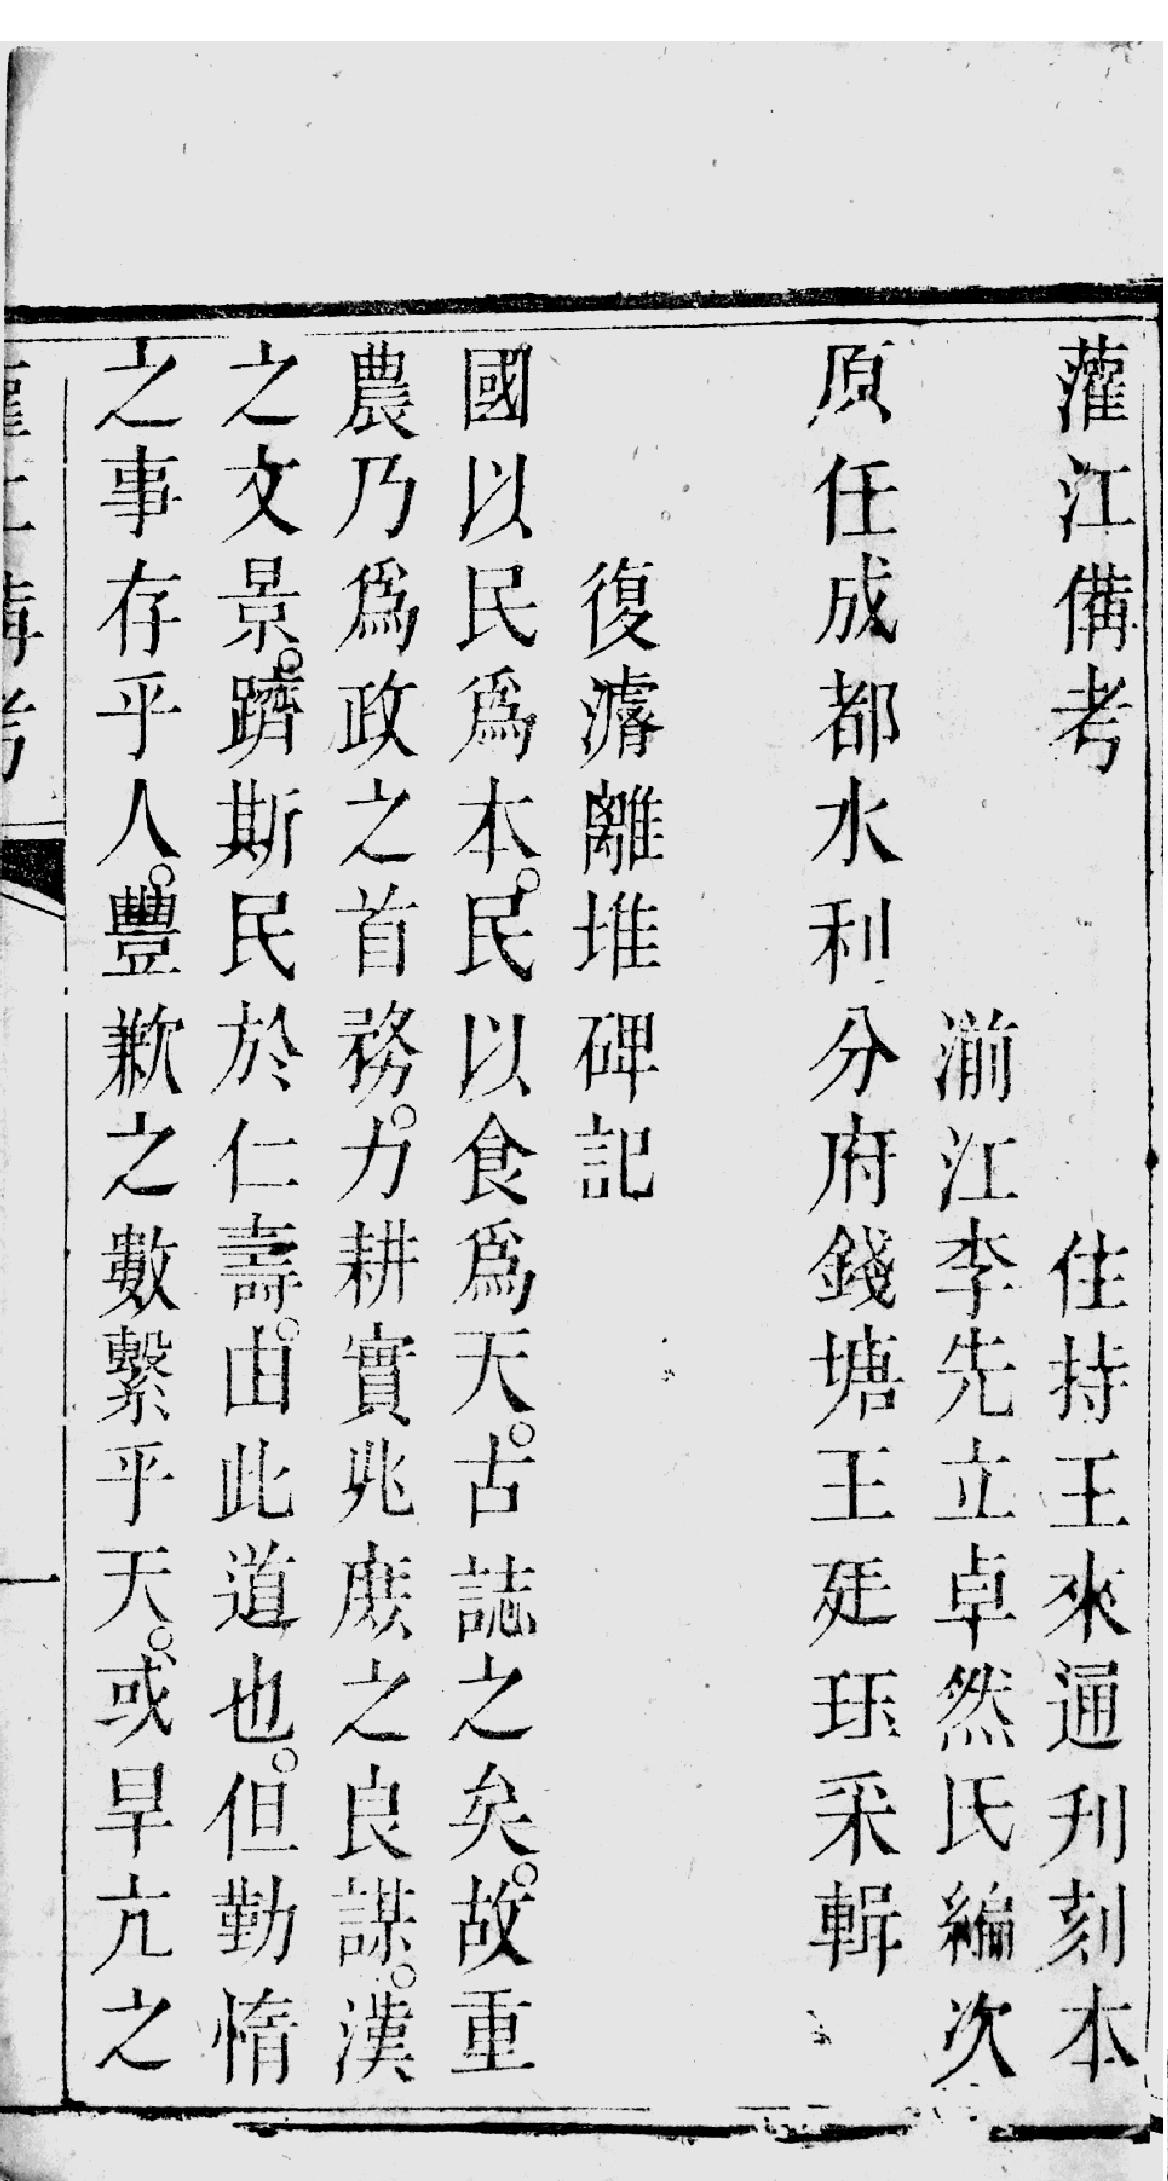 灌江備考　住持王來通刋刻本
湔江李先立卓然氏編次
原任成都水利分府錢塘王廷珏采輯
復濬離堆碑記
國以民爲本。民以食爲天。古誌之矣。故重
農乃爲政之首務。力耕實兆庶之良謀。漢
之文景。躋斯民於仁壽。由此道也。但勤惰
之事存乎人。豐歉之數繫乎天。或旱亢之
灌江備考
一